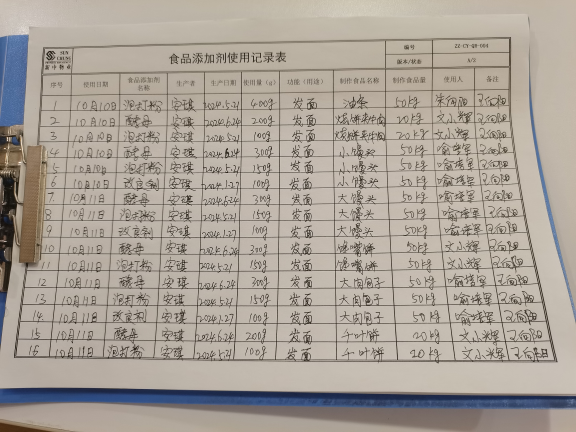 SUN CHUNG
新中物业
食品添加剂使用记录表
编号 ZZ-CY-QR-004
版本/状态 A/2
序号 使用日期 食品添加剂名称 生产者 生产日期 使用量(g) 功能(用途) 制作食品名称 制作食品量 使用人 备注
1 10月10日 泡打粉 安琪 2024.5.21 600g 发面 油条 50kg 朱向阳 王向阳
2 10月10日 酵母 安琪 2024.6.24 200g 发面 烧饼夹牛肉 20kg 文小辉 王向阳
3 10月10日 泡打粉 安琪 2024.5.21 100g 发面 烧饼夹牛肉 20kg 文小辉 王向阳
4 10月10日 酵母 安琪 2024.6.24 300g 发面 小馒头 50kg 喻培军 王向阳
5 10月10日 泡打粉 安琪 2024.5.21 150g 发面 小馒头 50kg 喻培军 王向阳
6 10月10日 改良剂 安琪 2024.1.27 100g 发面 小馒头 50kg 喻培军 王向阳
7 10月11日 酵母 安琪 2024.6.24 300g 发面 大馒头 50kg 喻培军 王向阳
8 10月11日 泡打粉 安琪 2024.5.21 150g 发面 大馒头 50kg 喻培军 王向阳
9 10月11日 改良剂 安琪 2024.1.27 100g 发面 大馒头 50kg 喻培军 王向阳
10 10月11日 酵母 安琪 2024.6.24 300g 发面 馍饼 50kg 文小辉 王向阳
11 10月11日 泡打粉 安琪 2024.5.21 150g 发面 饼 50kg 文小辉 王向阳
12 10月11日 酵母 安琪 2024.6.24 300g 发面 大肉包子 50kg 喻培军 王向阳
13 10月11日 泡打粉 安琪 2024.5.21 150g 发面 大肉包子 50kg 喻培军 王向阳
14 10月11日 改良剂 安琪 2024.1.27 100g 发面 大肉包子 50kg 喻培军 王向阳
15 10月11日 酵母 安琪 2024.6.24 200g 发面 千叶饼 20kg 文小辉 王向阳
16 10月11日 泡打粉 安琪 2024.5.21 100g 发面 千叶饼 20kg 文小辉 王向阳